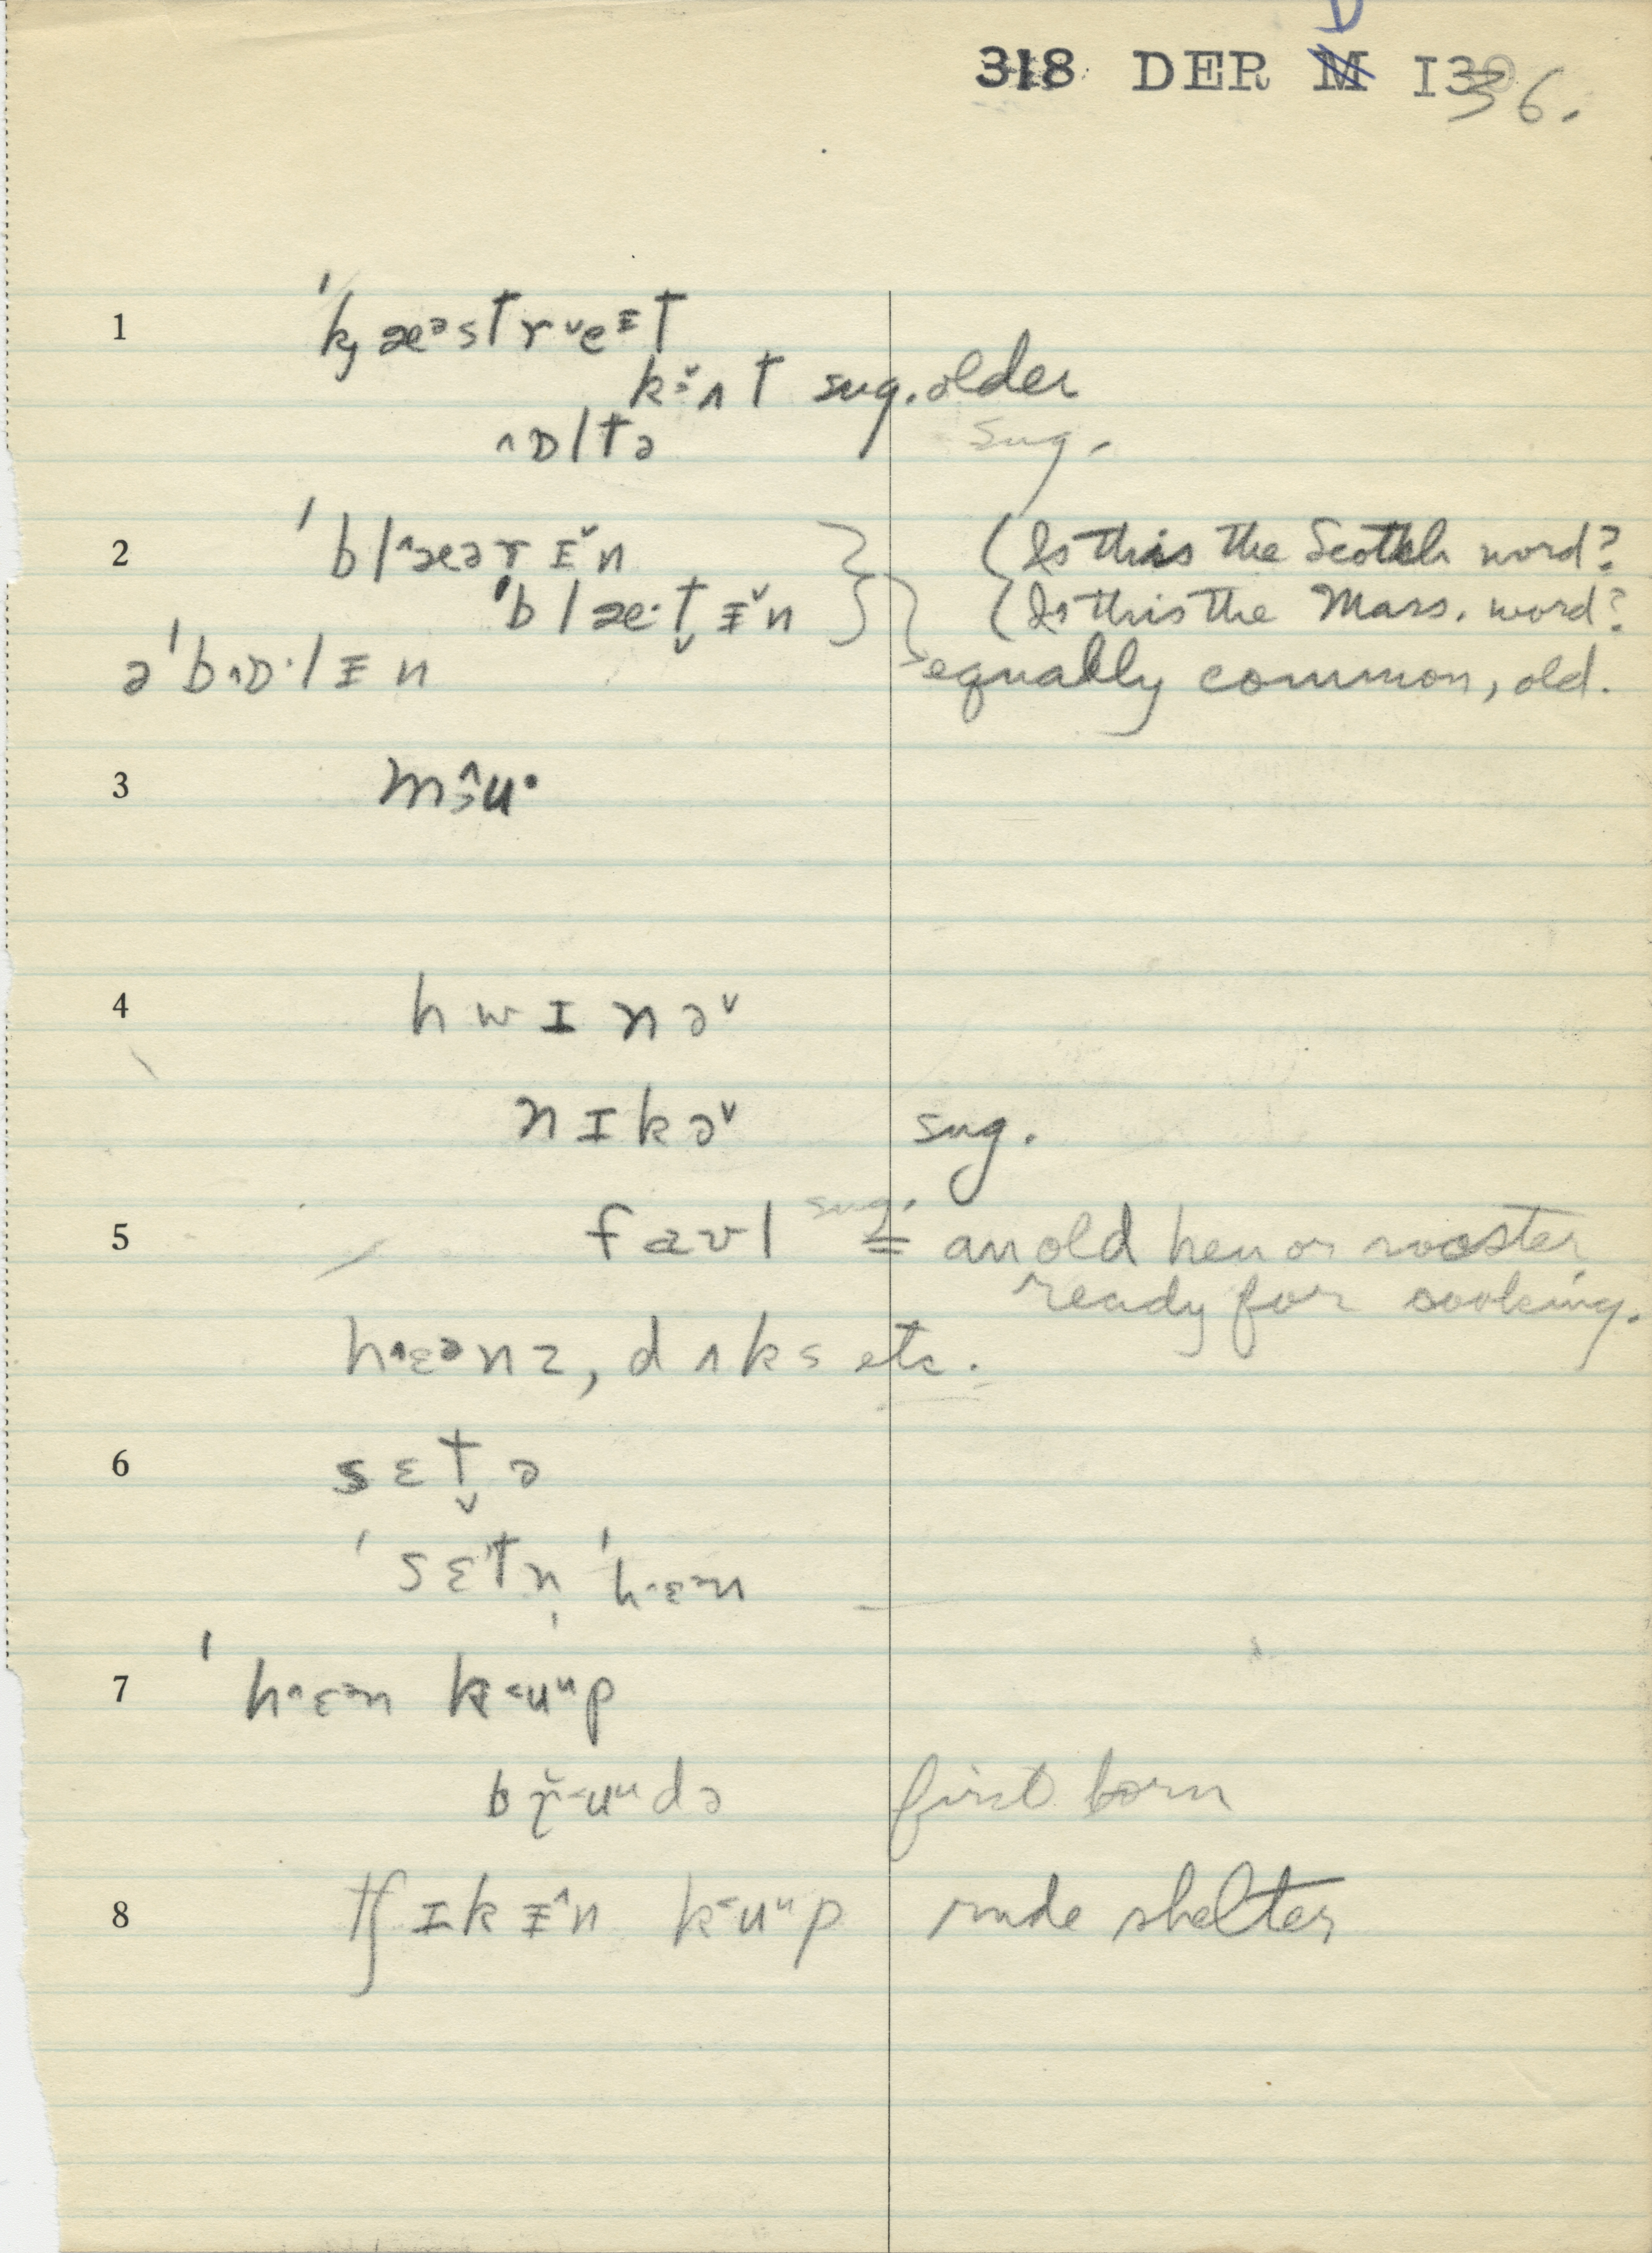 318 DER D I36.
1 ˈk̡æᵊstr˅eᵻt
kɜ̆ʌt sug. older
^ɒltə sug.
2 ˈbl^æərɪ̆n (Is this the Scotch word?
ˈblæ·t̬ᵻ̆n (Is this the Mass. word?
əˈb^ɒ·lᵻn equally common, old.
3 mɜ̂u·
4 hwɪnə˅
nɪkə˅ sug.
5 faʊl sug. = an old hen or rooster
ready for cooking.
h^ɛᵊnz, dʌks etc.
6 sɛt̬ə
ˈsɛtn̩ ˈh^ɛᵊn
7 ˈh^ɛᵊn k˂uᵘp
br̬˂uᵘdə first born
8 tʃɪkᵻ^n k˂uᵘp rude shelter